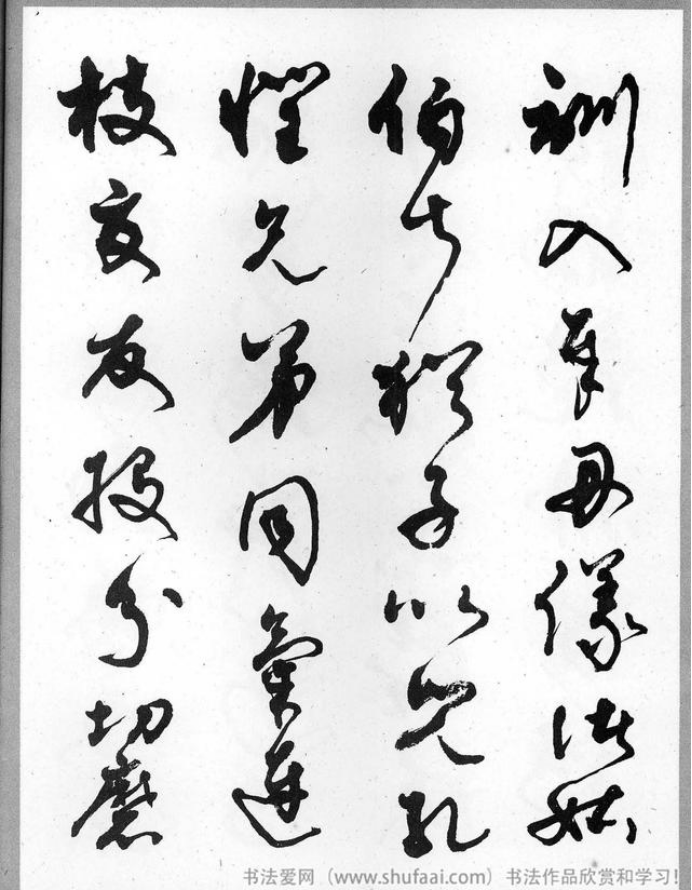 訓入奉母儀諸姑
伯叔猶子比兒孔
懷兄弟同氣連
枝交友投分切磨
书法爱网（www.shufaai.com）书法作品欣赏和学习！